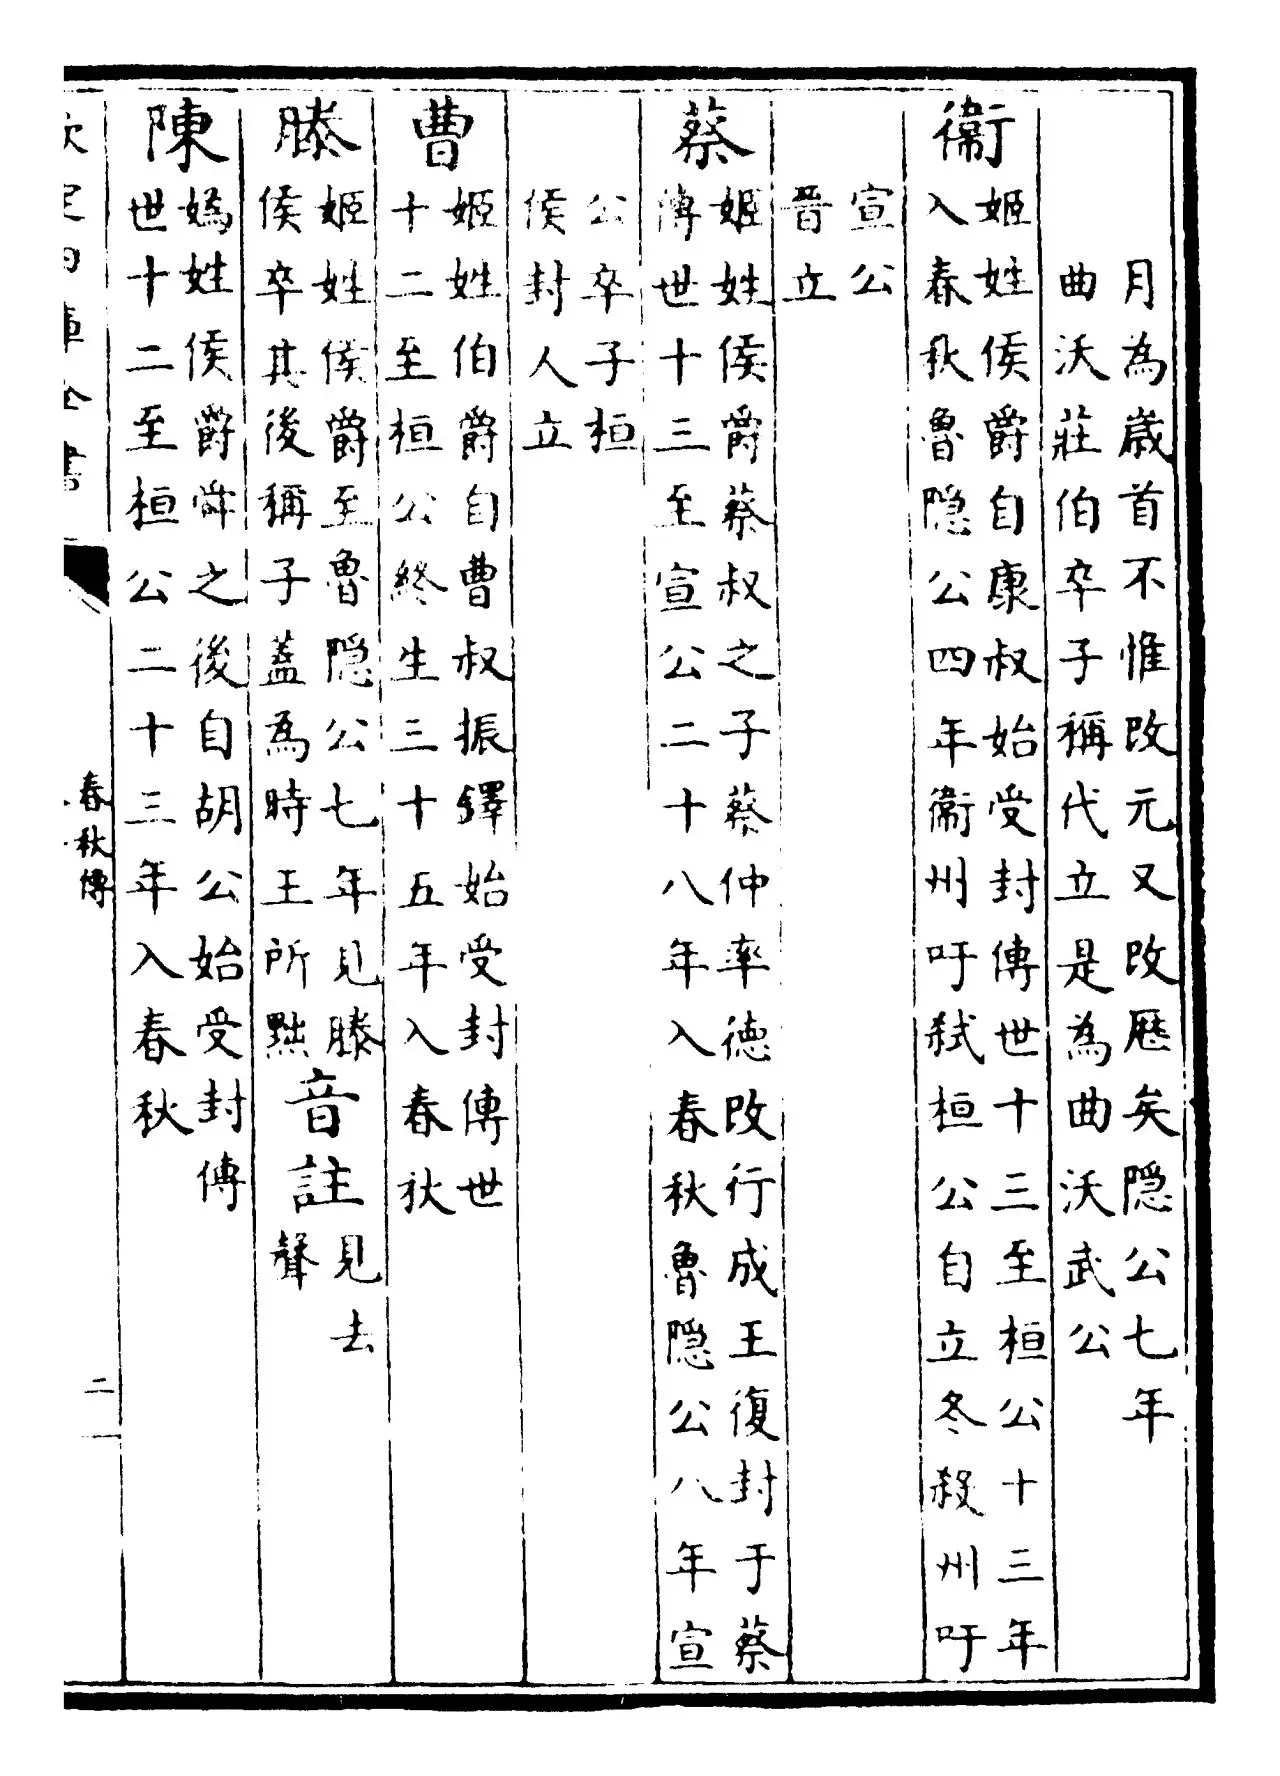 月為歳首不惟改元又改歴矣隠公七年
曲沃莊伯卒子稱代立是為曲沃武公
衞
姬姓侯爵自康叔始受封傳世十三至桓公十三年
入春秋魯隠公四年衞州吁弑桓公自立冬殺州吁
宣公
晋立
蔡
姬姓侯爵蔡叔之子蔡仲率徳改行成王復封于蔡
傳世十三至宣公二十八年入春秋魯隠公八年宣
公卒子桓
侯封人立
曹
姬姓伯爵自曹叔振鐸始受封傳世
十二至桓公終生三十五年入春秋
滕
姬姓侯爵至魯隠公七年見滕
侯卒其後稱子蓋為時王所黜
音註
見去
聲
陳
媯姓侯爵舜之後自胡公始受封傳
世十二至桓公二十三年入春秋
欽定四庫全書
春秋傳
二